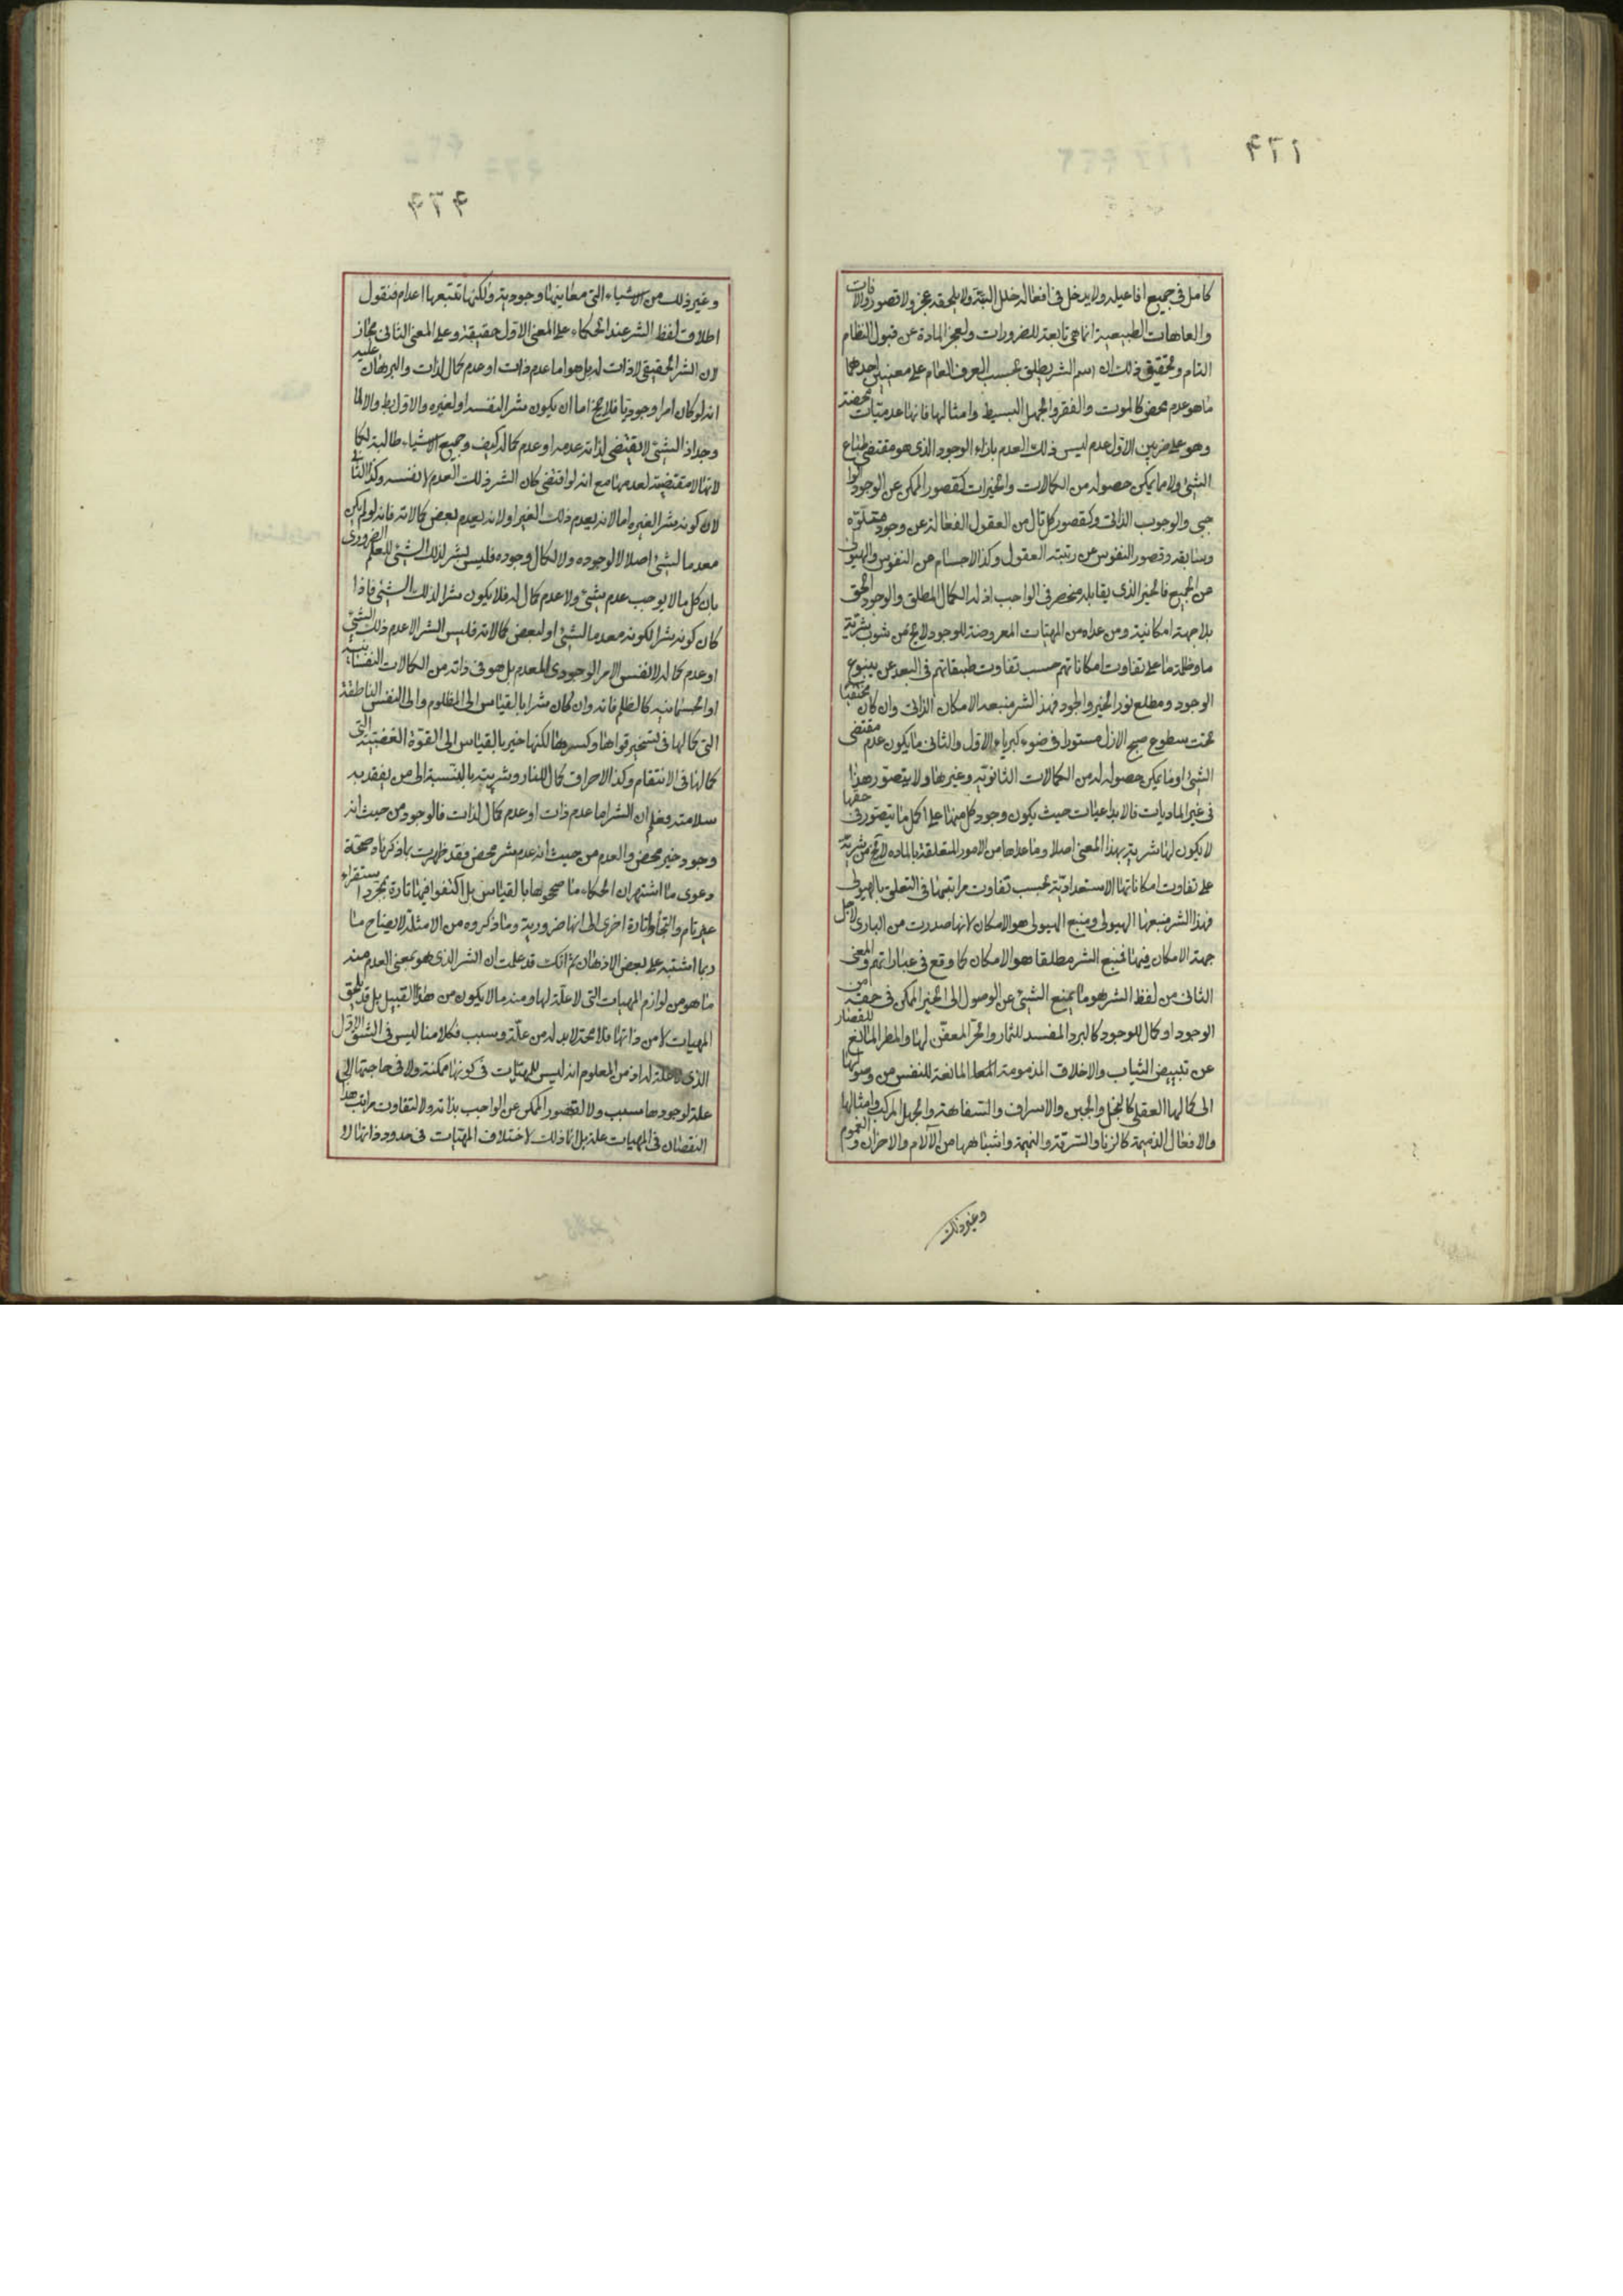 ٤٢١
كامل فى جميع افاعيله ولا يدخل فى افعاله خلل البتة ولا يلحقه عجز ولا قصور والآفات
والعاهات الطبيعية انما هى تابعة للضرورات ولعجز المادة عن قبول النظام
التام وتحقيق ذلك ان اسم الشر يطلق بحسب العرف العام على معنيين احدهما
ما هو عدم محض كالموت والفقر والجهل البسيط وامثالها فانها عدميات محضة
وهو على ضربين الاول عدم ليس ذلك العدم بازاء الوجود الذى هو مقتضى طباع
الشئ ولا مما يمكن حصوله من الكمالات والخيرات كقصور الممكن عن الوجود الوا
جبى والوجوب الذاتى وكقصور كل تال من العقول الفعالة عن وجود متلوّه
وسابقه وقصور النفوس عن رتبة العقول وكذا الاجسام عن النفوس والهيولى
عن الجميع فالخير الذى يقابله منحصر فى الواجب اذ له الكمال المطلق والوجود الحق
بلا جهة امكانية ومن عداه من المهيات المعروضة للوجود لا يخ عن شوب شرية
ما وظلمة ما على تفاوت امكاناتهم حسب تفاوت طبقاتهم فى البعد عن ينبوع
الوجود ومطلع نور الخير والجود فهذا الشر منبعه الامكان الذاتى وان كان مختفيا
تحت سطوع صبح الازل مستورا فى ضوء كبرياء الاول والثانى ما يكون عدم مقتضى
الشئ او ما يمكن حصوله له من الكمالات الثانوية وغيرها ولا يتصور هذا
فى غير الماديات فالابداعيات حيث يكون وجود كل منها على اكمل ما يتصور فى حقها
لا يكون لها شرية بهذا المعنى اصلا وما عداها من الامور المتعلقة بالمادة لا يخ من شرية
على تفاوت امكاناتها الاستعدادية بحسب تفاوت مراتبها فى التعلق بالهيولى
فهذا الشر منبعها الهيولى ومنبع الهيولى هو الامكان لانها صدرت من البارى لاجل
جهة الامكان فيها فمنبع الشر مطلقا هو الامكان كما وقع فى عباراتهم والمعنى
الثانى من لفظ الشر هو ما يمنع الشئ عن الوصول الى الخير الممكن فى حقه من
الوجود او كمال للوجود كالبرد المفسد للثمار والحرّ المعفّن لها والمطر المانع للقصار
عن تبييض الثياب والاخلاق المذمومة المانعة للنفس من وصولها
الى كمالها العقلى كالبخل والجبن والاسراف والسفاهة والجهل المركب وامثالها
والافعال الذميمة كالزنا والسرقة والنميمة واشباهها من الآلام والاحزان والغموم
وغير ذلك
٤٢٢
وغير ذلك من الاشياء التى معانيها وجودية ولكنها تتبعها اعدام فنقول
اطلاق لفظ الشر عند الحكماء على المعنى الاول حقيقة وعلى المعنى الثانى مجاز
لان الشر الحقيقى لا ذات له بل هو اما عدم ذات او عدم كمال لذات والبرهان عليه
انه لو كان امرا وجوديا فلا يخ اما ان يكون شرا لنفسه او لغيره والاول بط والا لما
وجد اذ الشئ لا يقتضى لذاته عدمه او عدم كماله كيف وجميع الاشياء طالبة لكما
لاتها لا مقتضية لعدمها مع انه لو اقتضى كان الشر ذلك العدم لا نفسه وكذا الثانى
لان كونه شرا لغيره اما لانه يعدم ذلك الغير او لانه يعدم بعض كمالاته فانه لو لم يكن
معدما لشئ اصلا لا لوجوده ولا لكمال وجوده فليس بشر لذلك الشئ للعلم الضرورى
بان كل ما لا يوجب عدم شئ ولا عدم كمال له فلا يكون شرا لذلك الشئ فاذا
كان كونه شرا لكونه معدما لشئ او لبعض كمالاته فليس الشر الا عدم ذلك الشئ
او عدم كماله لا نفس الامر الوجودى المعدم بل هو فى ذاته من الكمالات النفسانية
او الجسمانية كالظلم فانه وان كان شرا بالقياس الى المظلوم والى النفس الناطقة
التى كمالها فى تسخير قواها وكسرها لكنها خير بالقياس الى القوة الغضبية التى
كمالها فى الانتقام وكذا الاحراق كمال للنار وشريته بالنسبة الى من يفقد به
سلامته فعلم ان الشر اما عدم ذات او عدم كمال لذات فالوجود من حيث انه
وجود خير محض والعدم من حيث انه عدم شر محض فقد ظهرت بما ذكرناه صحة
دعوى ما اشتهر ان الحكماء ما صححوها بالقياس بل اكتفوا فيها تارة بمجرد استقراء
غير تام والتجأوا تارة اخرى الى انها ضرورية وما ذكروه من الامثلة لايضاح ما
ربما اشتبه على بعض الاذهان ثم انك قد علمت ان الشر الذى هو بمعنى العدم منه
ما هو من لوازم المهيات التى لا علة لها ومنه ما لا يكون من هذا القبيل بل قد يلحق
المهيات لا من ذاتها فلا محة لا بد له من علة وسبب فكلامنا ليس فى الشق الاول
الذى لا علة له اذ من المعلوم انه ليس للمهيات فى كونها ممكنة ولا فى حاجتها الى
علة لوجودها سبب ولا لقصور الممكن عن الواجب بذاته ولا لتفاوت مراتب هذا
النقصان فى المهيات علة بل انما ذلك لاختلاف المهيات فى حدود ذواتها لا